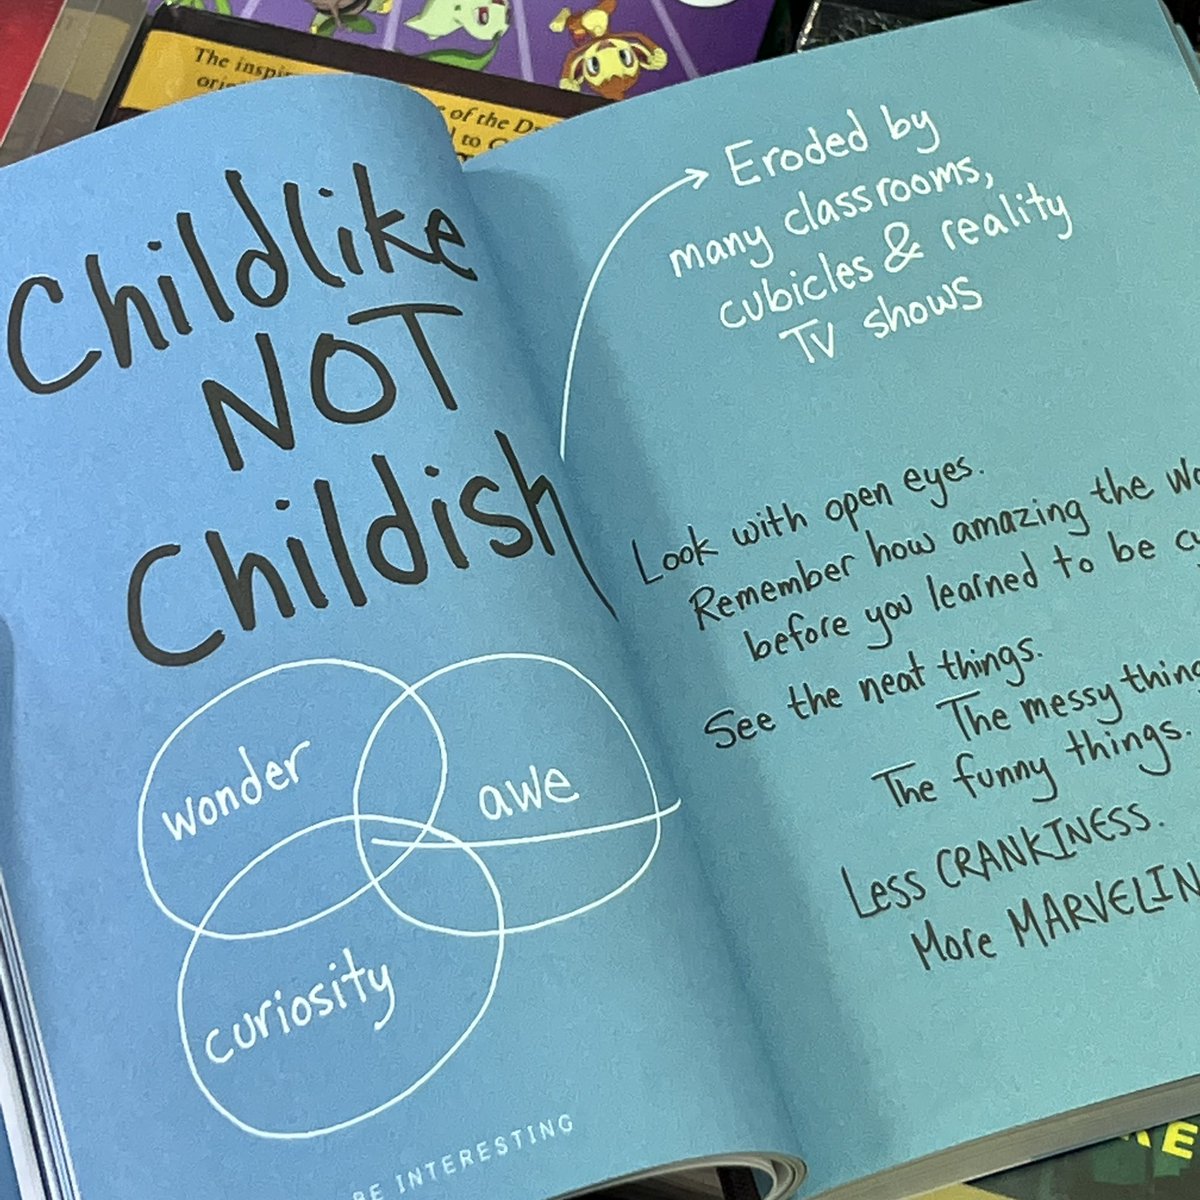 The inspi
of the Dr
to
Childlike
NOT
Childish
wonder
awe
curiosity
BE INTERESTING
Eroded by
many classrooms,
cubicles & reality
TV shows
Look with open eyes.
Remember how amazing the
before you learned to be
See the neat things.
The messy thing
The funny things.
Less CRANKINESS.
More MARVELIN